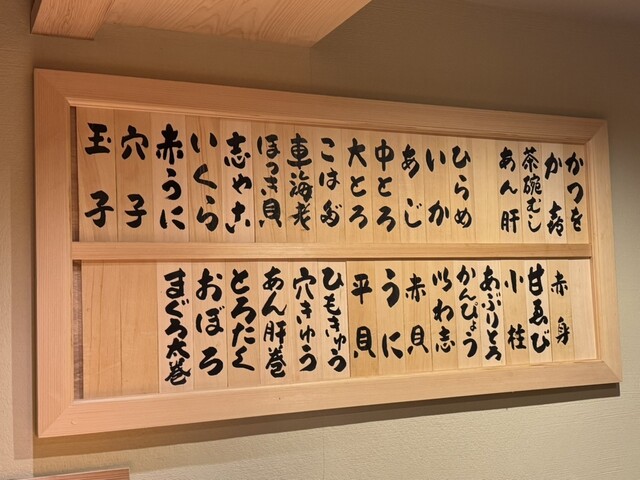 かつを
か喜
茶碗むし
あん肝
ひらめ
いか
あじ
中とろ
大とろ
こはだ
車海老
ほっき貝
志ゃこ
いくら
赤うに
穴子
玉子
赤身
甘ゑび
小柱
あぶりとろ
かんぴょう
いわ志
赤貝
うに
平貝
ひもきゅう
穴きゅう
あん肝巻
とろたく
おぼろ
まぐろ太巻